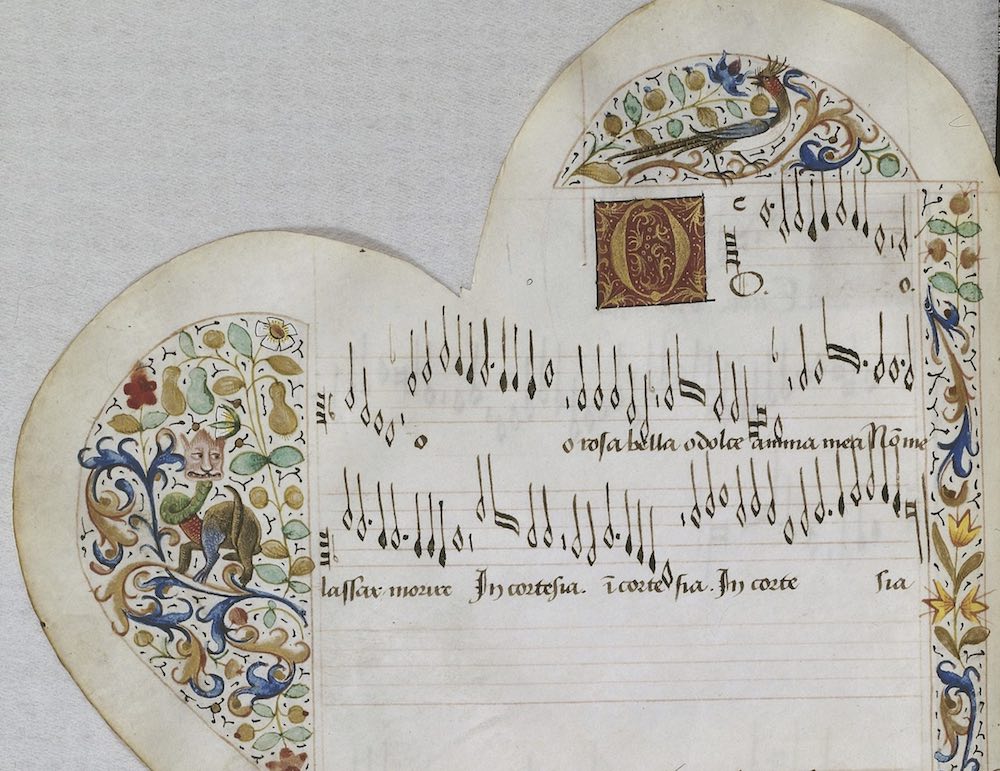 O o.
o o rosa bella o dolce anima mea Nō me
lassar morire In cortesia. ī corte sia. In corte sia